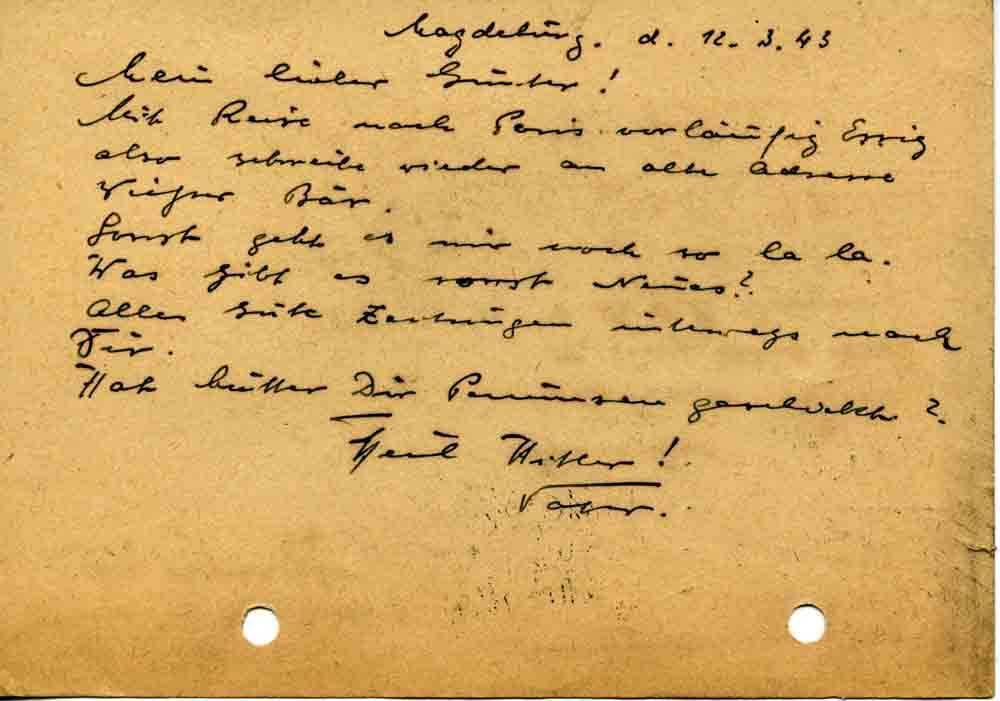 Magdeburg. d. 12. 3. 43
Mein lieber Günter!
Mit Reise nach Paris vorläufig Essig
also schreibe wieder an alte Adresse
Bär.
Sonst geht es mir noch so la la.
Was gibt es sonst Neues?
Alles Gute Zeitungen unterwegs nach
Dir.
Hat Mutter Dir Penunsen geschickt?
Heil Hitler!
Vater.